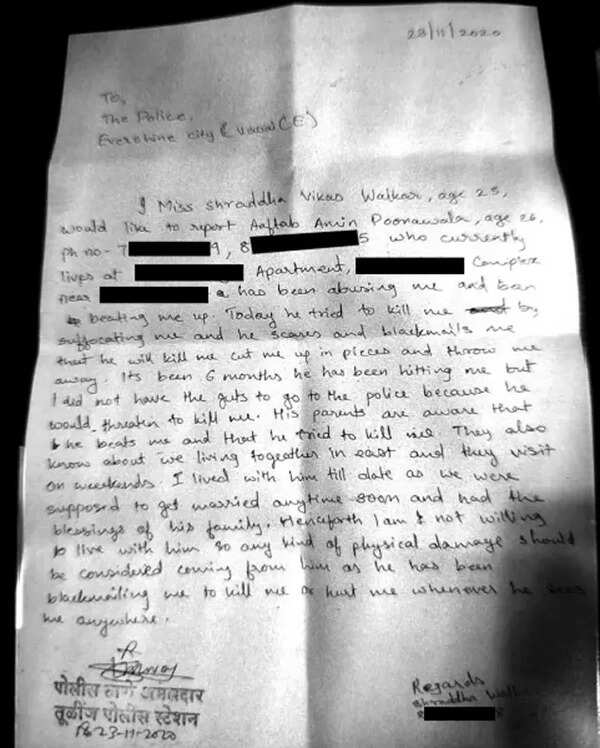 23/11/2020
To,
The Police,
Evershine city (Vasai(E)
I Miss Shraddha Vikas Walkar, age 25,
would like to report Aaftab Amin Poonawala, age 26,
Ph no- 7 9, 8 5 who currently
lives at Apartment, Complex
near has been abusing me and been
beating me up. Today he tried to kill me by
suffocating me and he scares and blackmails me
that he will kill me cut me up in pieces and throw me
away. Its been 6 months he has been hitting me but
I did not have the guts to go to the police because he
would threaten to kill me. His parents are aware that
he beats me and that he tried to kill me. They also
know about we living together in east and they visit
on weekends. I lived with him till date as we were
supposed to get married anytime soon and had the
blessings of his family. Henceforth I am not willing
to live with him so any kind of physical damage should
be considered coming from him as he has been
blackmailing me to kill me or hurt me whenever he sees
me anywhere.
पोलीस ठाणे अंमलदार
तुळींज पोलीस स्टेशन
23-11-2020
Regards
Shraddha